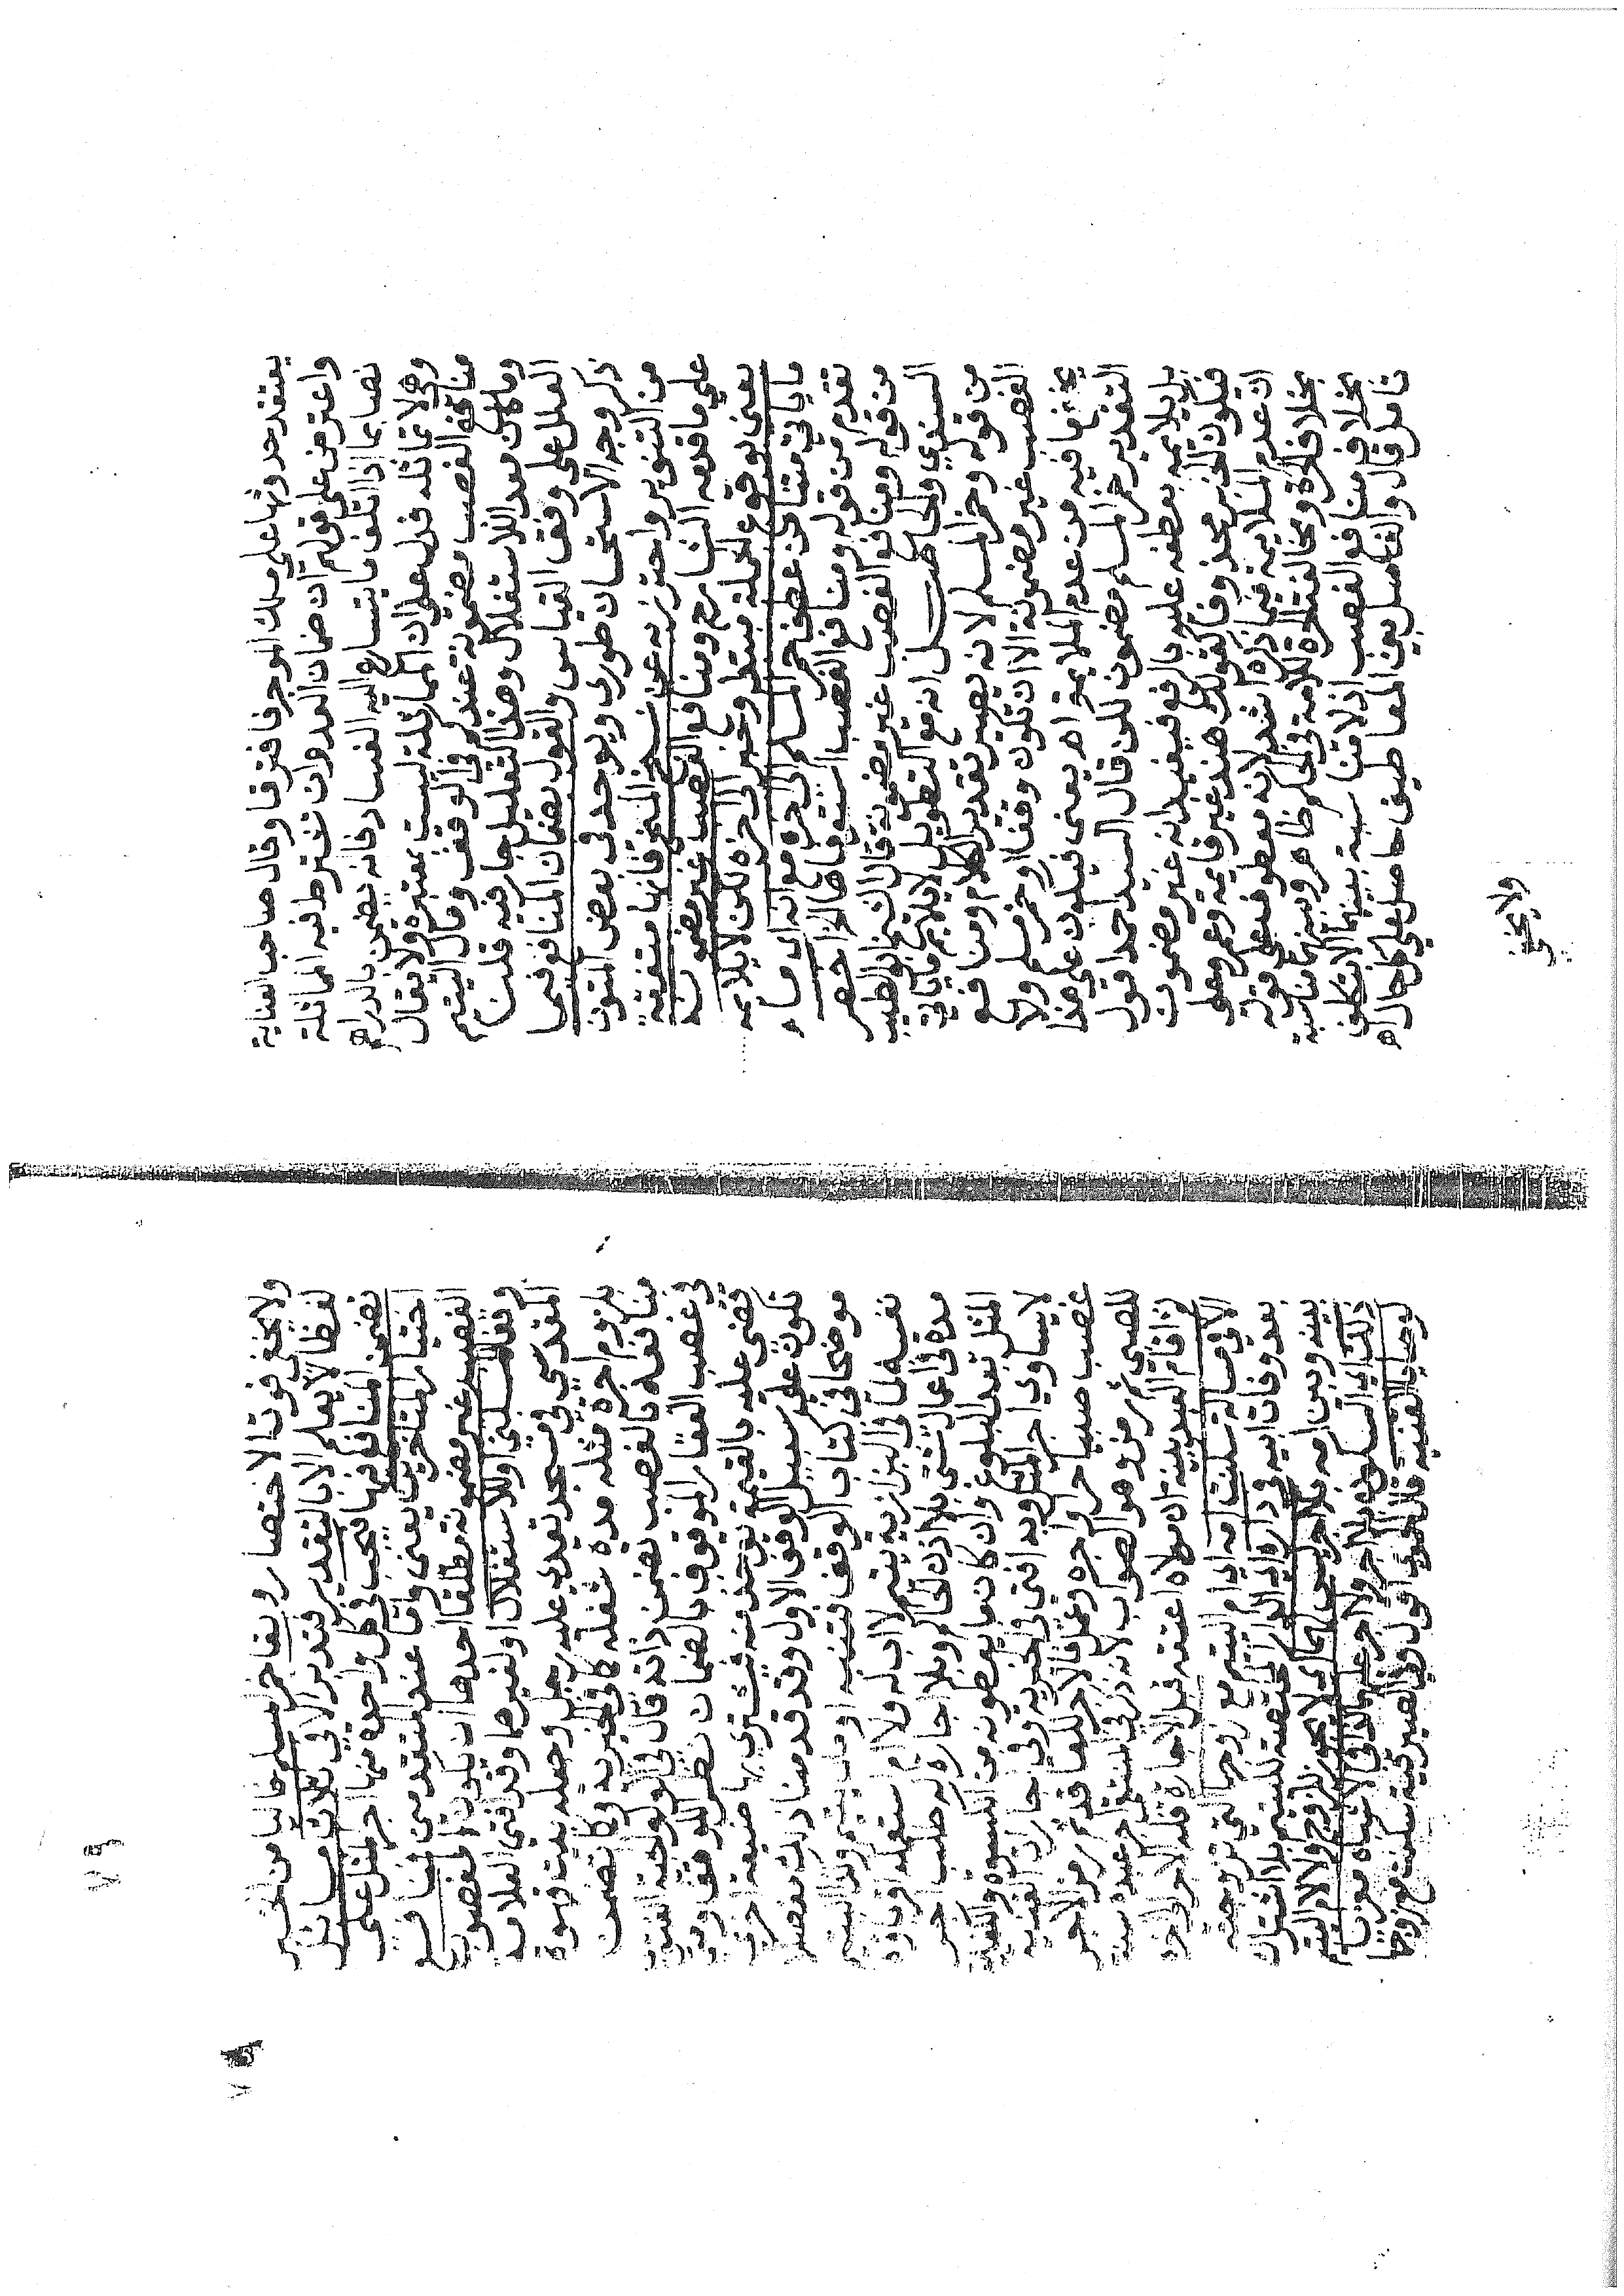 يعتقد حدوثها على مسلك الموجر فافترقا وقال صاحب العناية
واعترض على قولهم ان ضمان العدوان تشترط فيه المماثلة
نصا بما اذا اتلف ما يتسارع اليه الفساد فانه يضمن بالدراهم
وهي لا تماثله فدل على ان المماثلة ليست بمعتبرة ولا يقال
منافع الغصب مضمونة عندكم في الوقف ومال اليتيم
وما كان معدا للاستغلال وهذا التعليل جار فيه قلت
العلل على وفق القياس والقول بضمان المنافع فيما
ذكر وجه الاستحسان طوري ويوجد في بعض المتون
من التنوير واحترز به عن نسخ المنح فانها متفقة
على ما قدمه الشارح ومنافع الغصب غير مضمونة
يعني بوقوع الجملة مبتدا وخبر الى اخره لكن لا يلايمه
ما ياتي متنا من عطف خمر المسلم الى اخره مع انه اساء
تقدم من قوله ومنافع الغصب استوفاها الخ اخصر
من قوله ومنافع الغصب غير مضمونة قال الشيخ ابو الطيب
السندي والحاصل انه مع التطويل لا يلايم ما ياتي
من قوله وخمر المسلم لانه يصير تقدير الكلام ومنافع
الغصب غير مضمونة الا ان تكون وقفا او خمر مسلم ولا
يخفى ما فيه من عدم الملايمة اهـ يعني فيكون على هذا
التقدير خمر المسلم مضمون لكن قال السيد احمد اقول
بل يلايمه بعطفه عليه بالرفع فيفيد انه غير مضمون
فيكون الخبر محذوفا كقولك هند غير قايمة وعمرو على
ان عدم الملايمة فيما ذكره اشد لانه معطوف على قوله
بخلاف الحرة ومخالفة الحرة للامة في الحكم ظاهر وبينهما مناسبة
بخلاف منافع الغصب اذ لا مناسبة بينهما الا بتكلف
تامل قال والفاصل بين المعاطيف حاصل على كل حال اهـ
ولا يخفى
ولا يخفى فوت الاختصار وبقا خمر المسلم خاليا من الخبر
لفظا لا يعلم الا بالتقدير فتدبر الا في ثلاث مسائل
نضمن المنافع فيها فيجب في كل واحدة منها اجر المثل على
اختيار المتاخرين يعني واما عند المتقدمين فمنافع
الغصب غير مضمونة مطلقا احدها ان يكون المغصوب
وقفا للسكنى او للاستغلال او لغيرهما وقد افتى العلامة
المقدسي في مسجد تعدى عليه رجل وجعله بيت قهوة
بلزوم اجرة مثله مدة شغله كما في الخيرية وكما تضمن
منافعه بالغصب تضمن ذاته قال في الولوالجية الفتوى
في غصب العقار الموقوف بالضمان نظرا للوقف ومتى
قضي عليه بالقيمة توخذ منه فيشترى بها ضيعة اخرى
تكون على سبيل الوقف الاول وقد قدمنا ذلك مفصلا
موضحا في كتاب الوقف فتنبه او مال يتيم وكذا اليتيم
نفسه لما في البزازية يتيم لا اب له ولا ام استعمله اقرباؤه
مدة في اعمال شتى بلا اذن الحاكم وبلا اجارة له طلب اجر
المثل بعد البلوغ وان كان ما يعطونه من الكسوة والكفاية
لا يساوي اجر المثل وبه افتى في الخيرية وفي اجارات القنية
غصب صبيا حرا واجره وعمل فالاجر للعاقد ثم رمز الاجر
للصبي ثم رمز وهو الصواب لانه ذكر في المنتقى اجر عبده سنة
ثم اقام العبد بينة ان مولاه اعتقه قبل الاجارة فله الاجر
الا في مسالة سكنت امه اي ام اليتيم مع زوجها التي تزوجته
بعد وفات ابيه في داره اي الدار المختصة لليتيم بلا اشتراك
بينه وبين امه بلا اجر ليس لهما اي لا يجوز للزوج ولا لام اليتيم
ذلك اي السكون بلا اجر ولا اجر عليهما كذا في الاشباه معزيا
لوصايا القنية قال الحموي اقول وفي الصيرفية سكنت مع زوجها